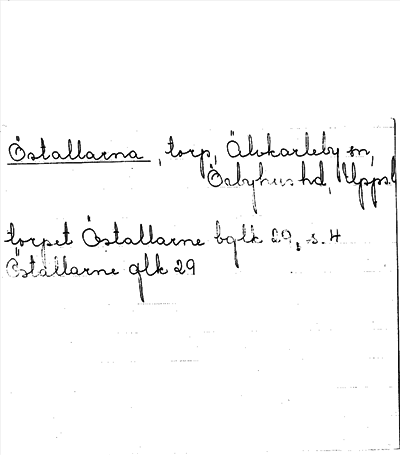 Östallarna, torp, Älvkarleby sn,
Örbyhus hd, Uppsl
torpet Östallarne bglk 29, s. 4
Östallarne glk 29